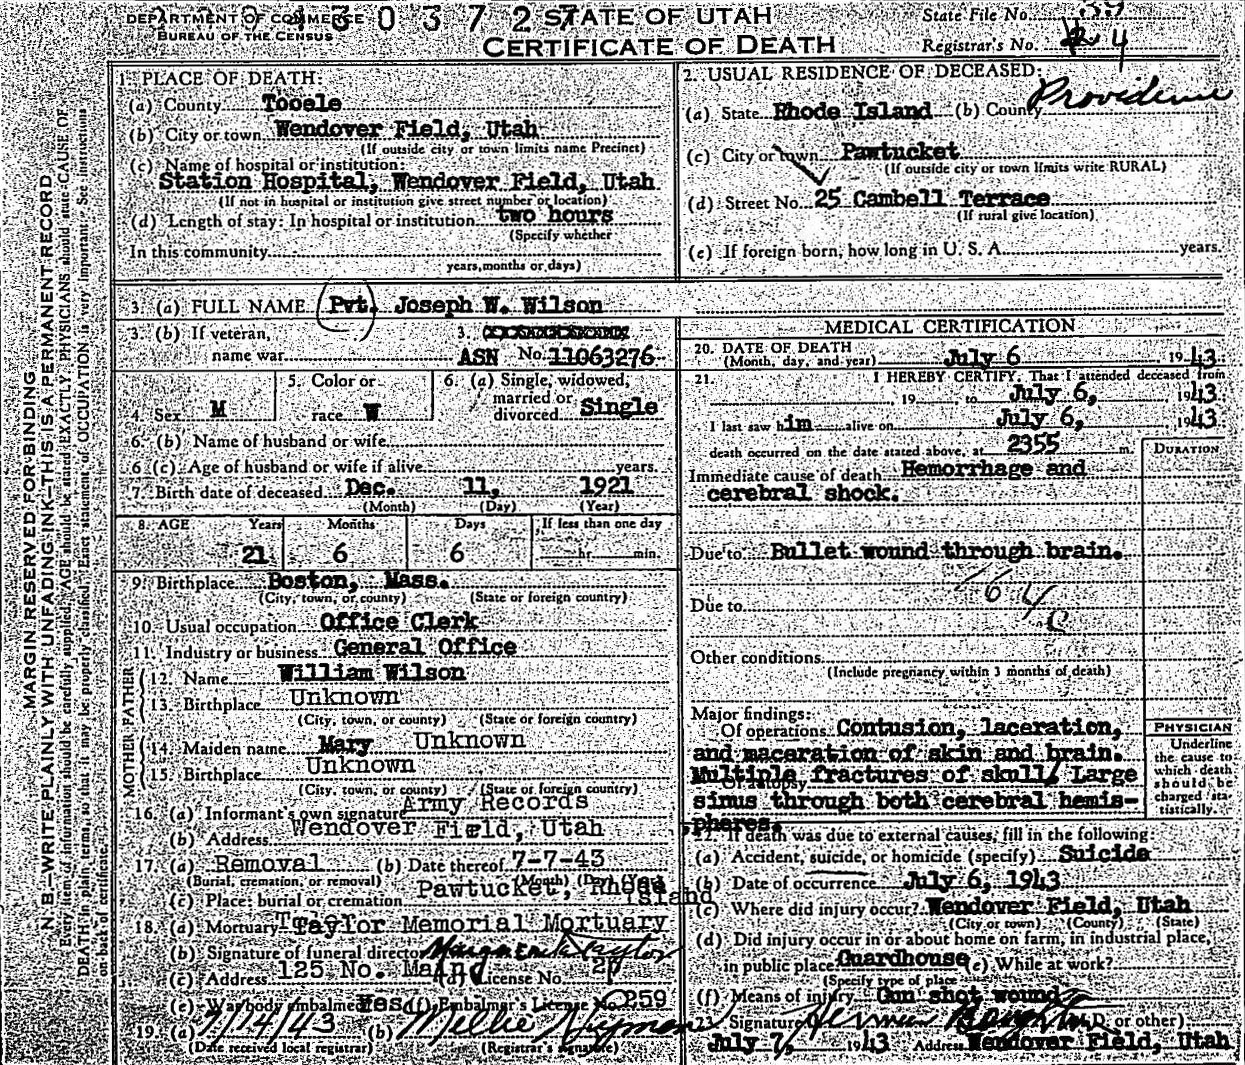 DEPARTMENT OF COMMERCE
BUREAU OF THE CENSUS
3 0 3 7 2 7
STATE OF UTAH
CERTIFICATE OF DEATH
State File No. 39
Registrar's No. 4
MARGIN RESERVED FOR BINDING
N. B.—WRITE PLAINLY WITH UNFADING INK—THIS IS A PERMANENT RECORD
Every item of information should be carefully supplied. AGE should be stated EXACTLY. PHYSICIANS should state CAUSE OF
DEATH in plain terms, so that it may be properly classified. Exact statement of OCCUPATION is very important. See instructions
on back of certificate.
1. PLACE OF DEATH:
(a) County Tooele
(b) City or town Wendover Field, Utah
(If outside city or town limits name Precinct)
(c) Name of hospital or institution:
Station Hospital, Wendover Field, Utah
(If not in hospital or institution give street number or location)
(d) Length of stay: In hospital or institution two hours
(Specify whether
In this community
years, months or days)
2. USUAL RESIDENCE OF DECEASED:
(a) State Rhode Island (b) County Providence
(c) City or town Pawtucket
(If outside city or town limits write RURAL)
(d) Street No. 25 Cambell Terrace
(If rural give location)
(e) If foreign born, how long in U. S. A. years.
3. (a) FULL NAME Pvt. Joseph W. Wilson
3. (b) If veteran,
name war
3.
ASN No. 11063276
4. Sex M
5. Color or
race W
6. (a) Single, widowed,
married or
divorced Single
6. (b) Name of husband or wife
6 (c) Age of husband or wife if alive years.
7. Birth date of deceased Dec. 11, 1921
(Month) (Day) (Year)
8. AGE Years Months Days If less than one day
21 6 6 hr. min.
9. Birthplace Boston, Mass.
(City, town, or county) (State or foreign country)
10. Usual occupation Office Clerk
11. Industry or business General Office
FATHER
12. Name William Wilson
13. Birthplace Unknown
(City, town, or county) (State or foreign country)
MOTHER
14. Maiden name Mary Unknown
15. Birthplace Unknown
(City, town, or county) (State or foreign country)
16. (a) Informant's own signature Army Records
(b) Address Wendover Field, Utah
17. (a) Removal (b) Date thereof 7-7-43
(Burial, cremation, or removal) (Month) (Day) (Year)
(c) Place: burial or cremation Pawtucket, Rhode
Island
18. (a) Mortuary Taylor Memorial Mortuary
(b) Signature of funeral director
(c) Address 125 No. Main (d) License No.
(e) Was body embalmed Yes (f) Embalmer's License No. 259
19. (a) 7/14/43 (b) Mellie Hyman
(Date received local registrar) (Registrar's signature)
MEDICAL CERTIFICATION
20. DATE OF DEATH
(Month, day, and year) July 6 1943
21. I HEREBY CERTIFY, That I attended deceased from
, 19 to July 6, 1943
I last saw him alive on July 6, 1943
death occurred on the date stated above, at 2355 m.
DURATION
Immediate cause of death Hemorrhage and
cerebral shock.
Due to Bullet wound through brain.
164
c
Due to
Other conditions
(Include pregnancy within 3 months of death)
Major findings:
Of operations Contusion, laceration,
and maceration of skin and brain.
Of autopsy Multiple fractures of skull/ Large
sinus through both cerebral hemis-
pheres.
PHYSICIAN
Underline
the cause to
which death
should be
charged sta-
tistically.
22. If death was due to external causes, fill in the following:
(a) Accident, suicide, or homicide (specify) Suicide
(b) Date of occurrence July 6, 1943
(c) Where did injury occur? Wendover Field, Utah
(City or town) (County) (State)
(d) Did injury occur in or about home on farm, in industrial place,
in public place Guardhouse (e) While at work?
(Specify type of place
(f) Means of injury Gun shot wound
23. Signature (M.D. or other)
July 7, 1943 Address Wendover Field, Utah